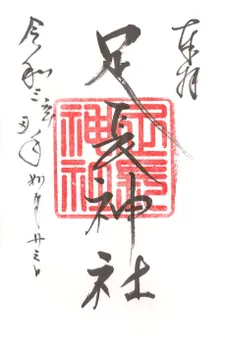 奉拝
足長神社
令和三辛丑年如月廿三日
足長
神社